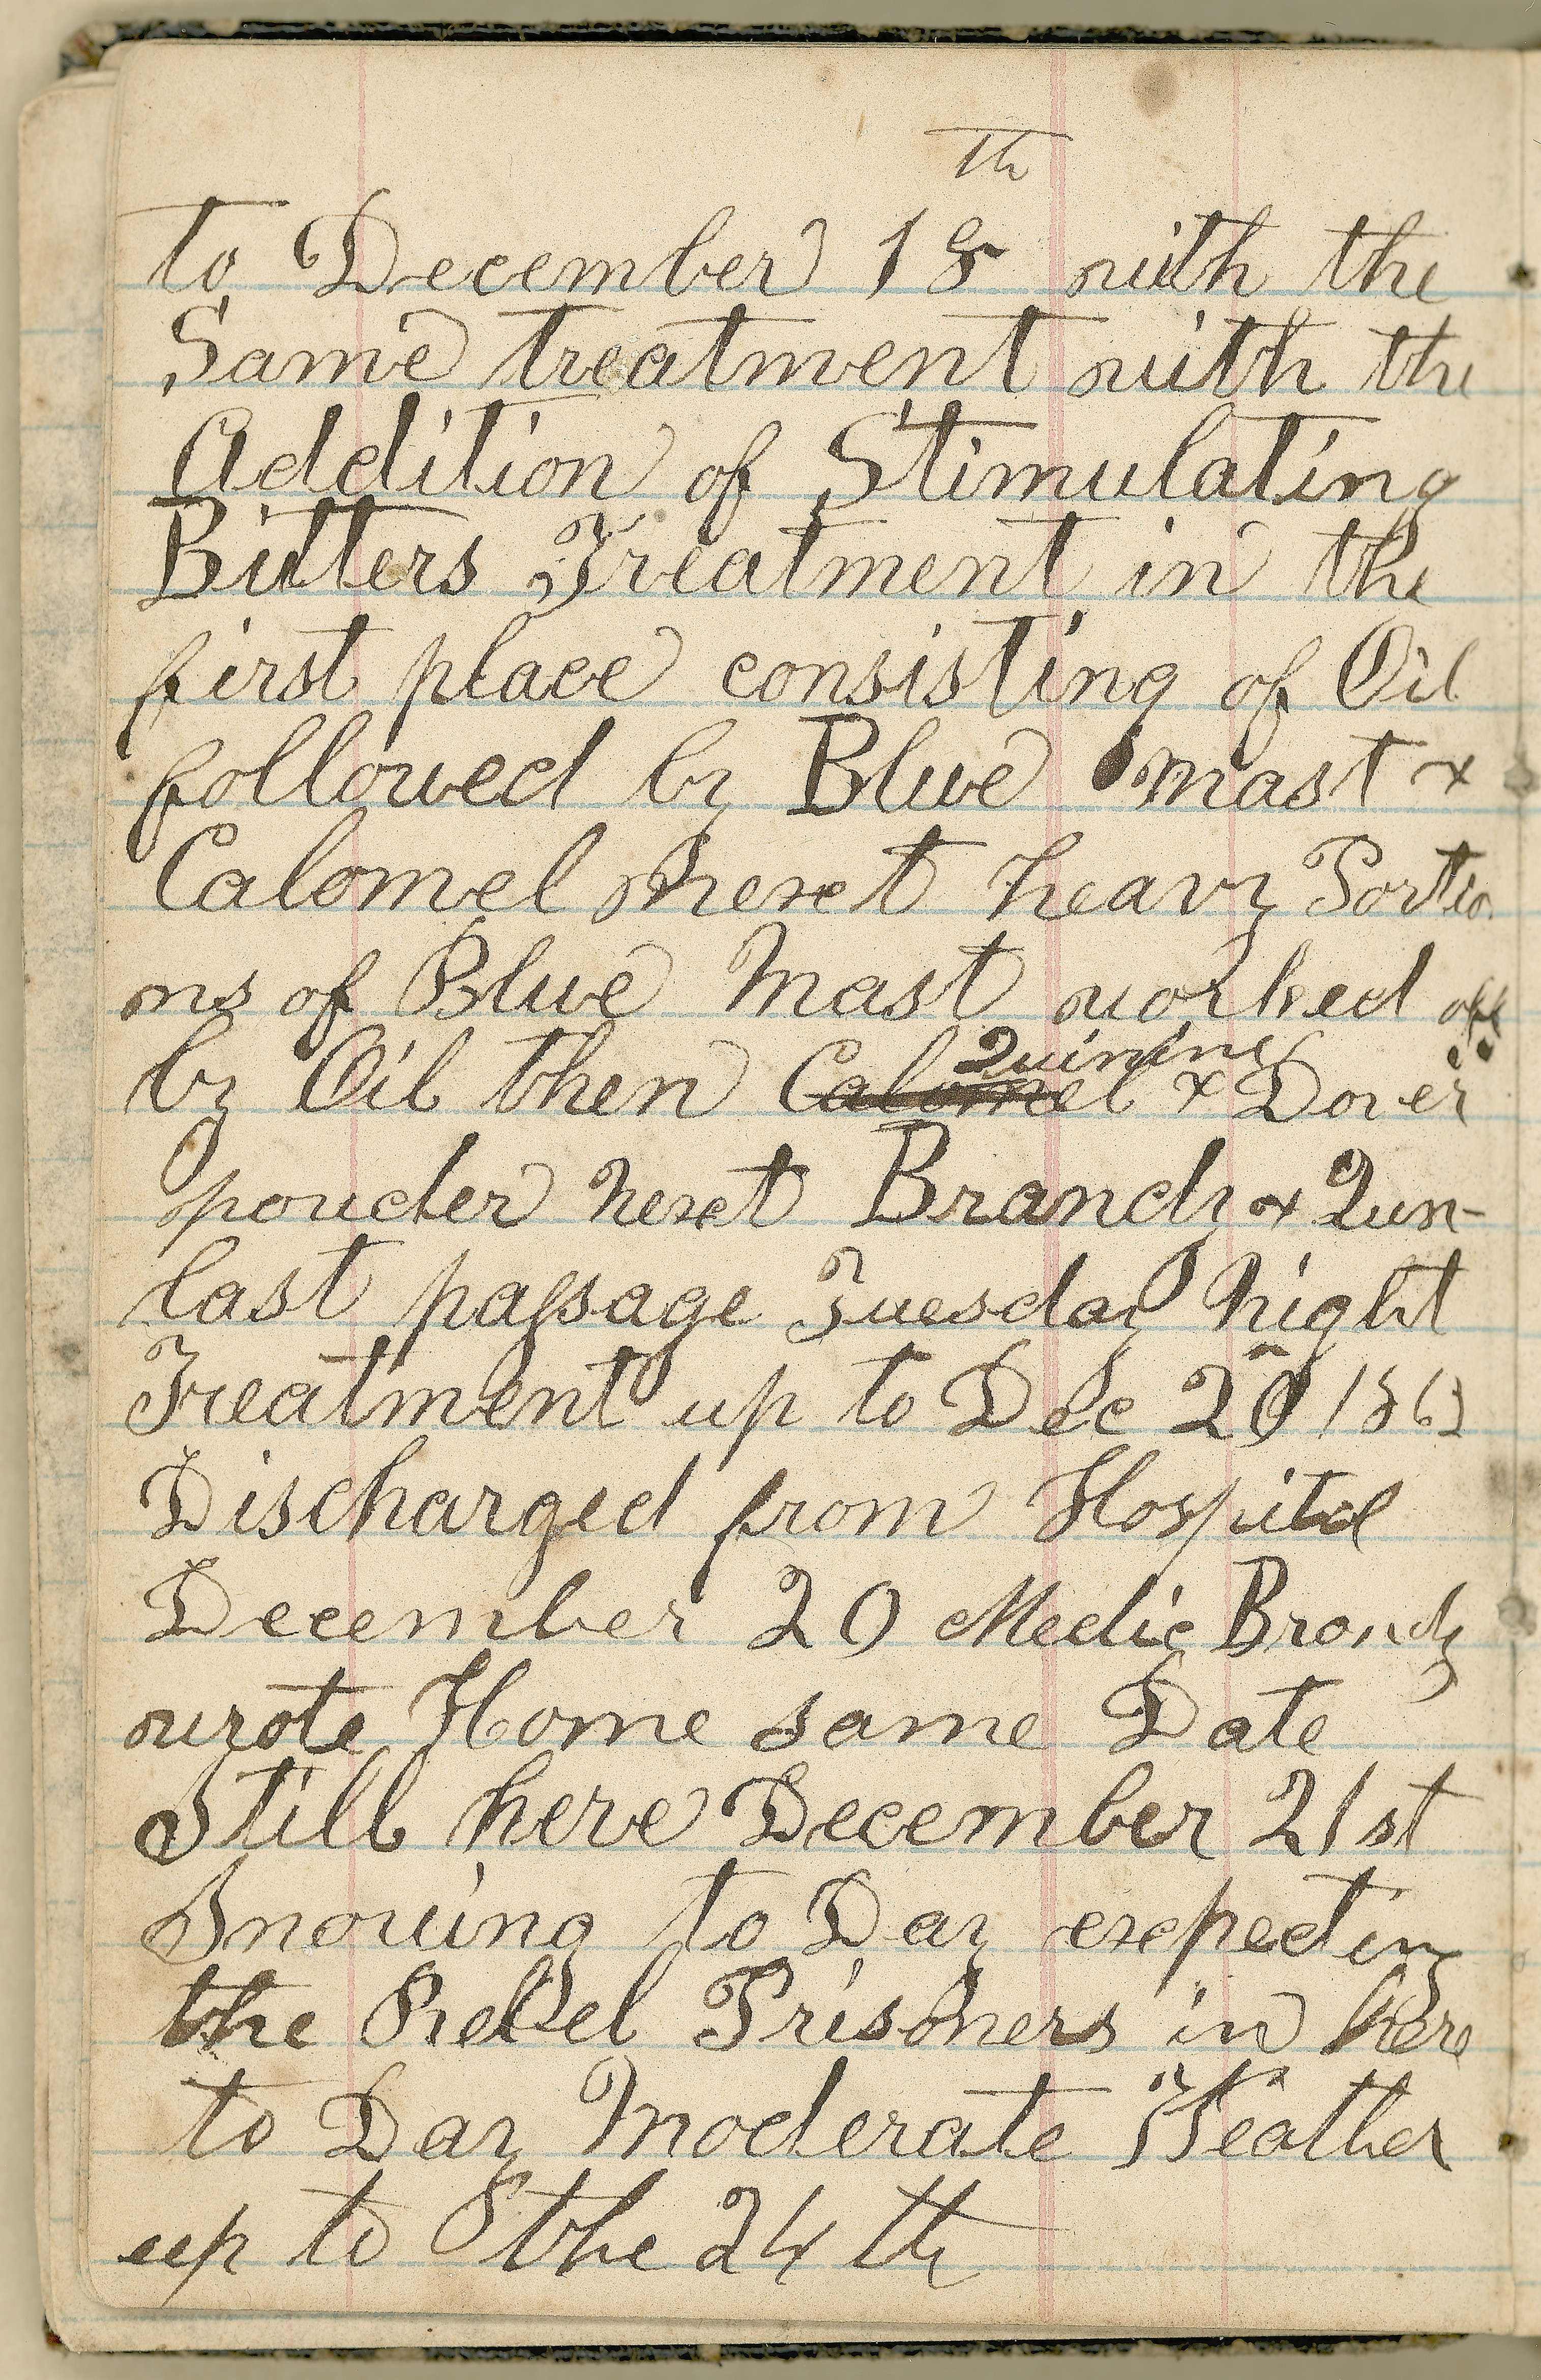 th
to December 18 with the
Same treatment with the
Addition of Stimulating
Bitters Treatment in the
first place consisting of Oil
followed by Blue Mast &
Calomel Next heavy Portio
ns of Blue Mast worked off
Quinine
by Oil then Calomel & Dover
powder Next Brandy & Qun-
last passage Tuesday Night
Treatment up to Dec 20 1863
Discharged from Hospital
December 20 Medic Brandy
wrote Home same Date
Still here December 21st
Snowing to Day expecting
the Rebel Prisoners in here
to Day Moderate Weather
up to the 24th